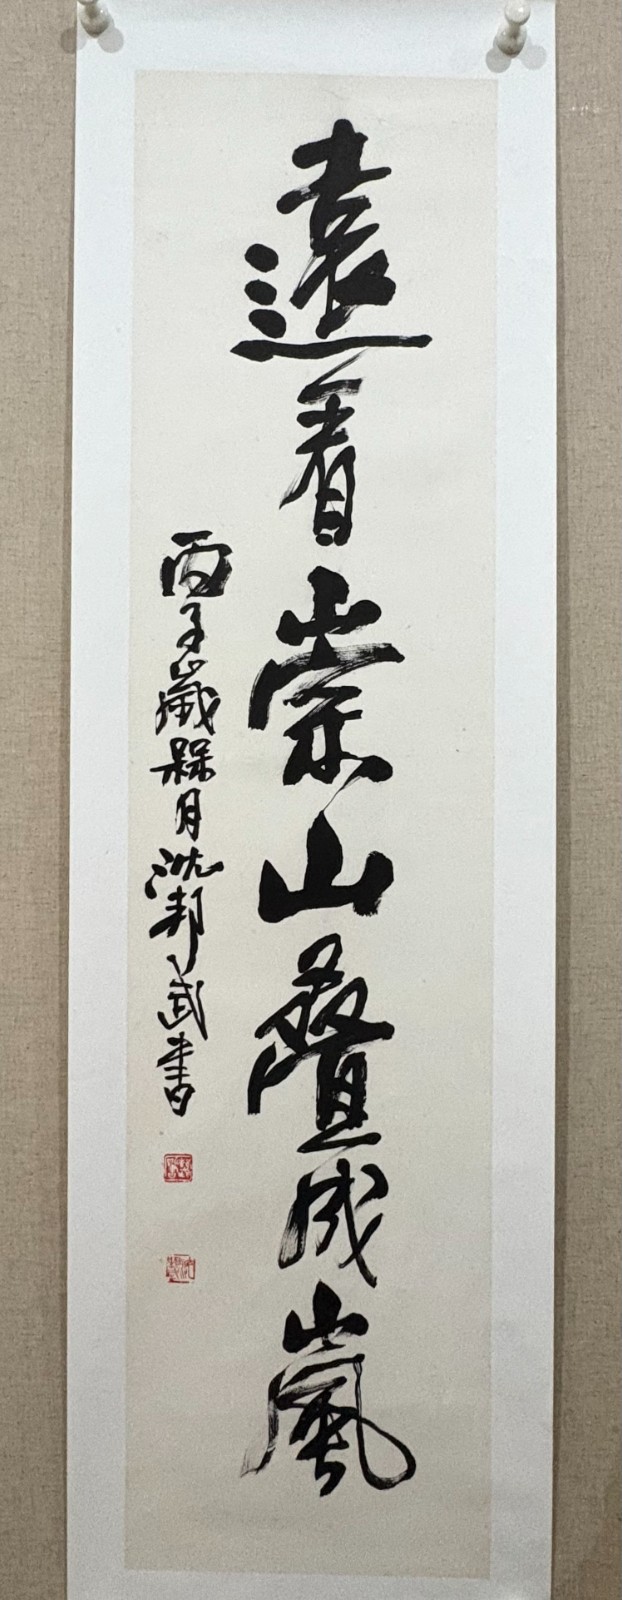 遠看崇山叠成嵐
丙子歲槑月沈邦武書